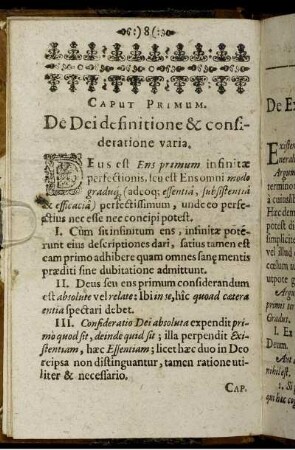 :)8(:
CAPUT PRIMUM.
De Dei definitione & consi-
deratione varia.
DEus est Ens primum infinitæ
perfectionis, seu est Ens omni modo
graduq; (adeoq; essentiâ, subsistentiâ
& efficaciâ) perfectissimum, unde eo perfe-
ctius nec esse nec concipi potest.
I. Cùm sit infinitum ens, infinitæ pote-
runt eius descriptiones dari, satius tamen est
eam primo adhibere quam omnes sanę mentis
præditi sine dubitatione admittunt.
II. Deus seu ens primum considerandum
est absolutè vel relatè: Ibi in se, hîc quoad cætera
entia spectari debet.
III. Consideratio Dei absoluta expendit pri-
mo quod sit, deinde quid sit; illa perpendit Exi-
stentiam, hæc Essentiam; licet hæc duo in Deo
reipsa non distinguantur, tamen ratione uti-
liter & necessario.
CAP.
De Ex
Existen
Deum.